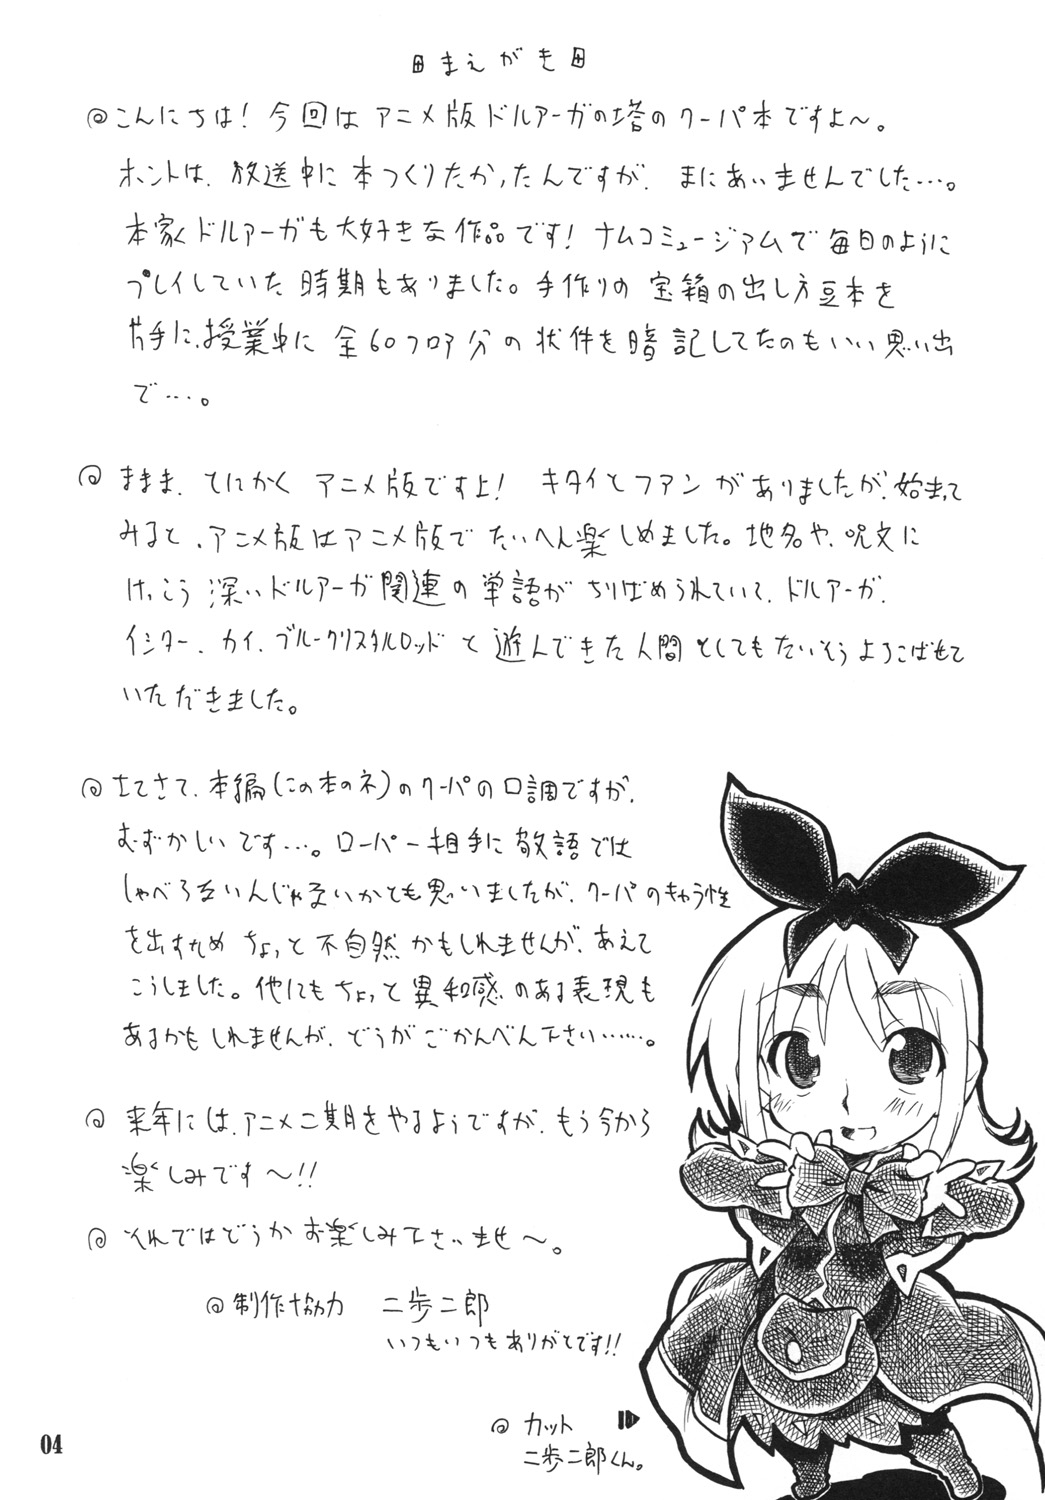 まえがき
こんにちは！今回はアニメ版ドルアーガの塔のクーパ本ですよ～。
ホントは、放送中に本つくりたかったんですが、まにあいませんでした…。
本家ドルアーガも大好きな作品です！ナムコミュージアムで毎日のように
プレイしていた時期もありました。手作りの宝箱の出し方豆本を
片手に、授業中に全60フロア分の状件を暗記してたのもいい思い出
で…。
ままま、とにかくアニメ版ですよ！キタイとファンがありましたが、始まって
みると、アニメ版はアニメ版でたいへん楽しめました。地名や、呪文に
けっこう深いドルアーガ関連の単語がちりばめられていて、ドルアーガ、
イシター、カイ、ブルークリスタルロッドと遊んできた人間としてもたいそうよろこばせて
いただきました。
さてさて、本編（この本のネ）のクーパの口調ですが、
むずかしいです…。ローパー相手に敬語では
しゃべらないんじゃないかとも思いましたが、クーパのキャラ性
を出すためちょっと不自然かもしれませんが、あえて
こうしました。他にもちょっと異和感のある表現も
あるかもしれませんが、どうがごかんべん下さい……。
来年には、アニメ二期をやるようですが、もう今から
楽しみです～！！
それではどうかお楽しみ下さいませ～。
制作協力 二歩二郎
いつもいつもありがとです！！
カット
二歩二郎くん。
04